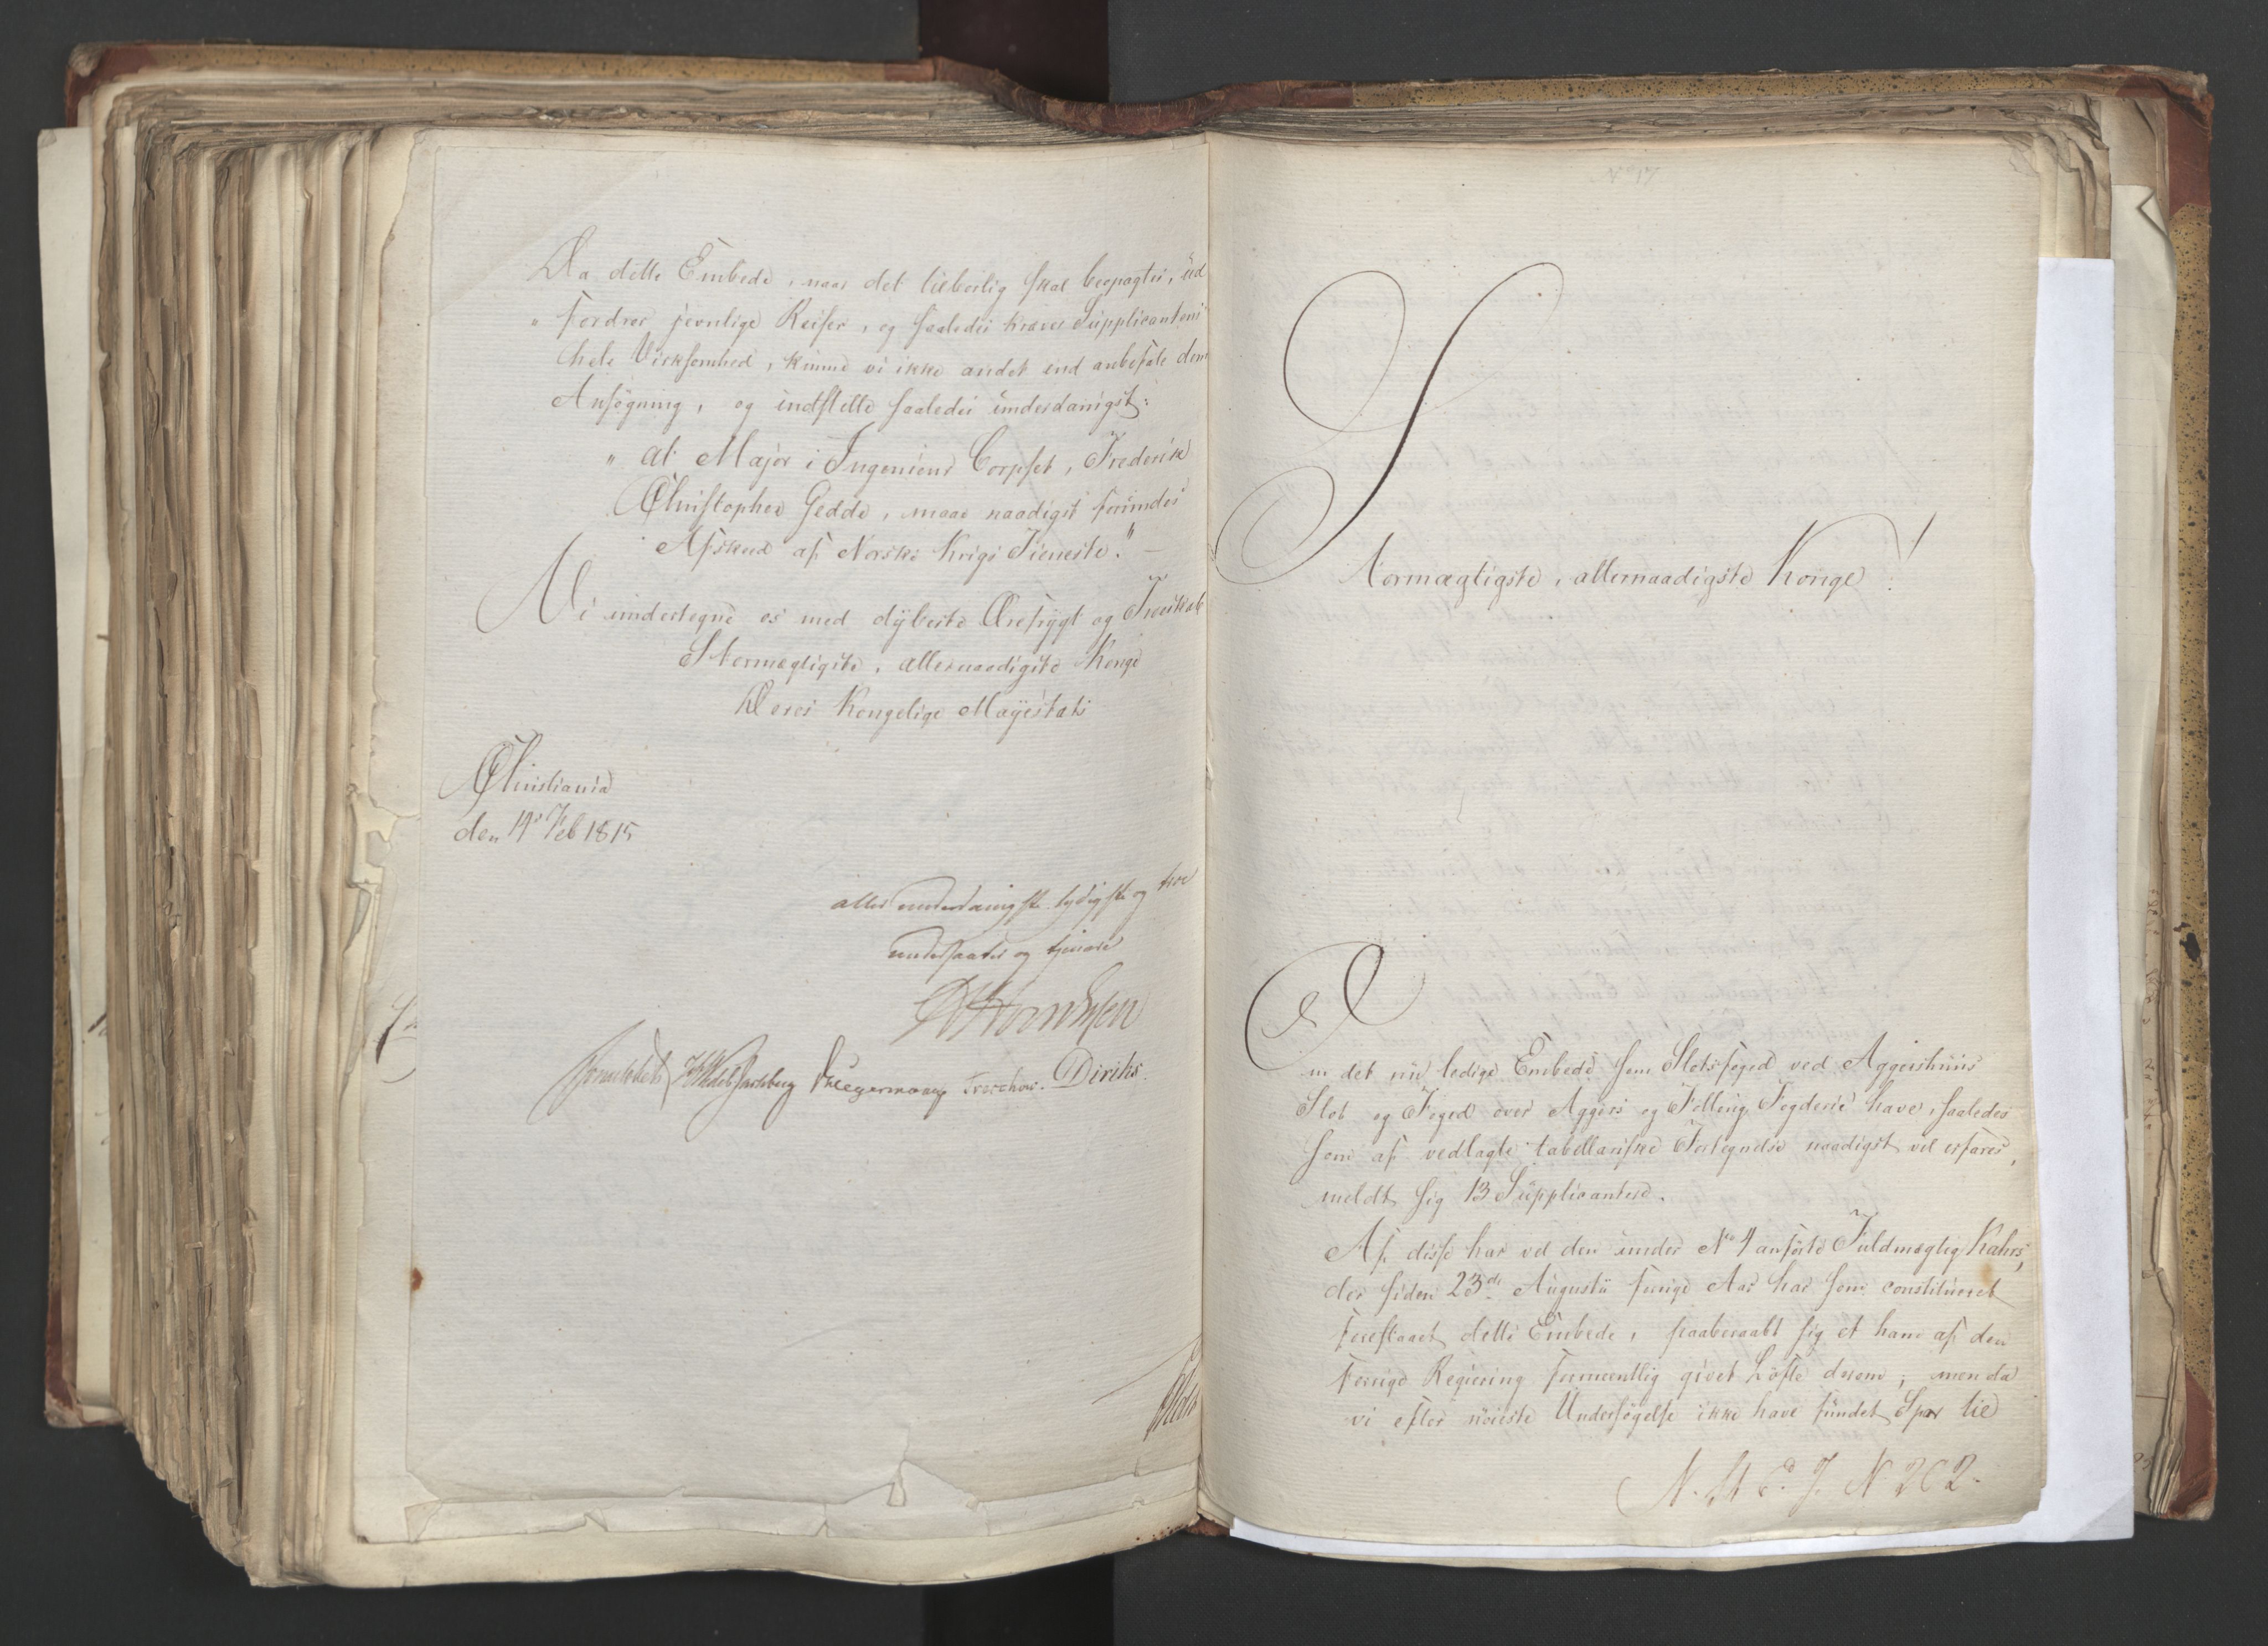 Da dette Embede, naar det tilbørlig skal beopagtes, ud
fordrer jevnlige Reiser, og saaledes kræver Supplicantens
hele Virksomhed, kunne vi ikke andet end anbefale den
Ansøgning, og indstille saaledes underdanigst:
"at Major i Ingenieur Corpset, Frederik
Christopher Gedde, maae naadigst forundes
Afskeed af Norske Krigs Tieneste." —
Vi undertegne os med dybeste Ærefrygt og Troeskab
Stormægtigste, allernaadigste Konge
Deres Kongelige Mayestæts
Christiania
den 14de Feb 1815
aller underdanigste lydigste og troe
undersaatter og tjenere
Sommerhielm HWedel Jarlsberg Hegermann Treschow. Diriks.
No 17
Stormægtigste, allernaadigste Konge!
Om det nu ledige Embede som Slotsfoged ved Aggershuus
Slot og Foged over Aggers og Folloug Fogderie have, saaledes
som af vedlagte tabellariske Fortegnelse naadigst vil erfares,
meldt sig 13 Supplicantere.
Af disse har vel den under No 4 anførte Fuldmægtig Kahrs,
der siden 23de Augustii forrige Aar har som constitueret
forestaaet dette Embede, paaberaabt sig et ham af den
forrige Regiering formeentlig givet Løfte derom; men da
vi efter nøieste Undersøgelse ikke have fundet Spor til